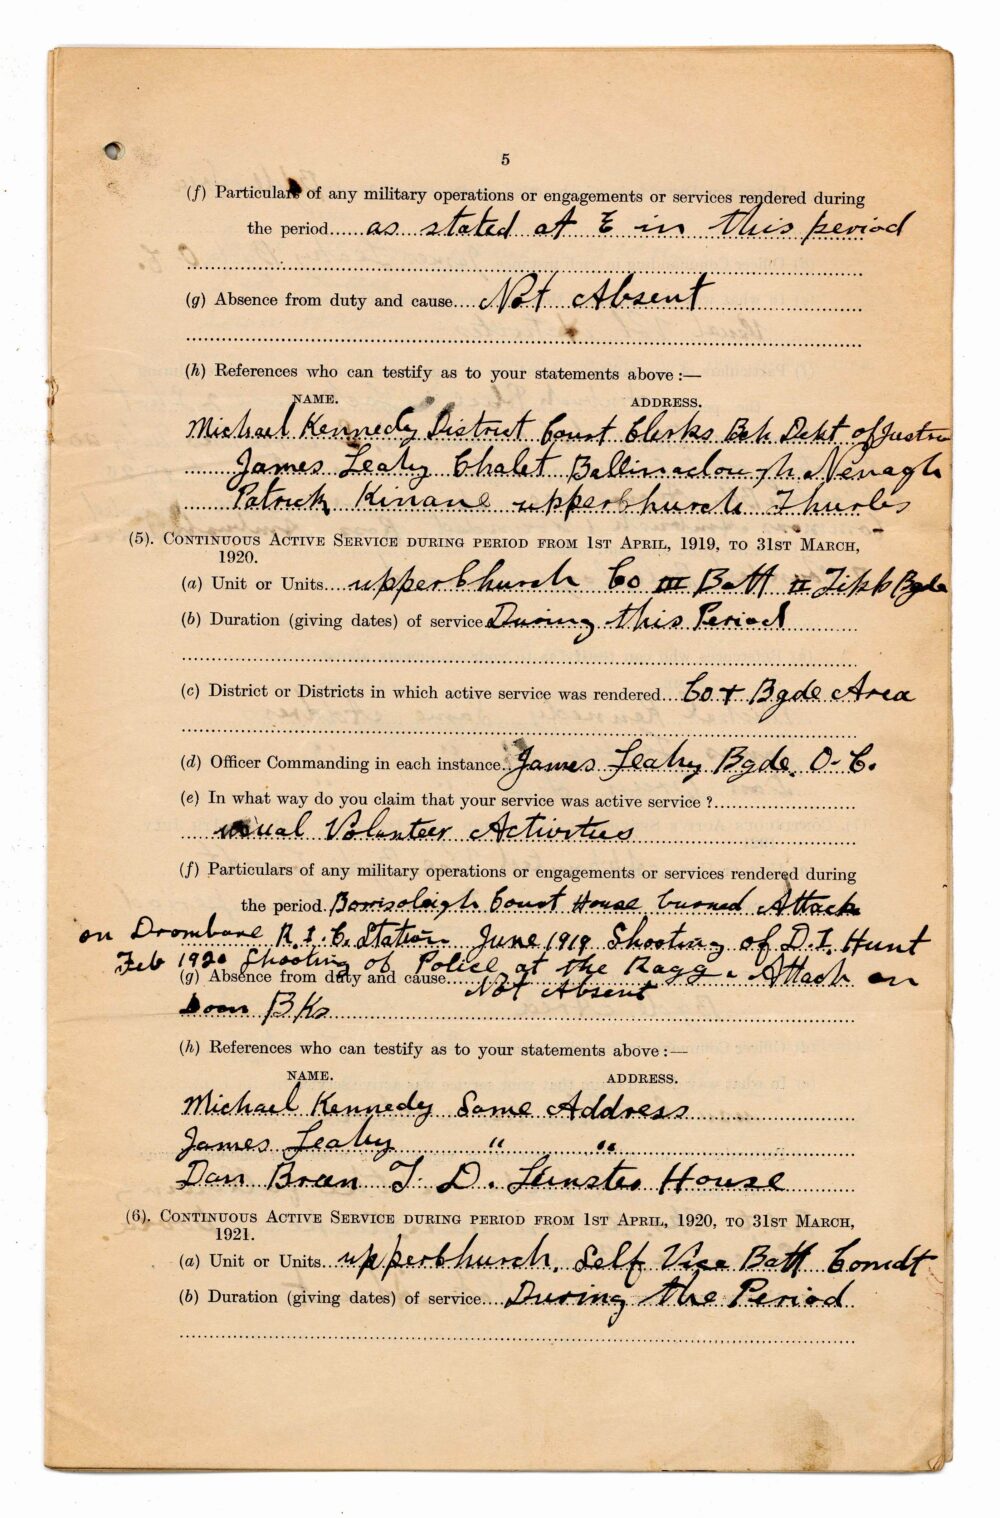 5
(f) Particulars of any military operations or engagements or services rendered during
the period as stated at E in this period
(g) Absence from duty and cause Not Absent
(h) References who can testify as to your statements above :—
NAME. ADDRESS.
Michael Kennedy District Court Clerks Bch Dekt of Justice
James Leahy Chalet Ballinaclough Nenagh
Patrick Kinane upperChurch Thurles
(5). CONTINUOUS ACTIVE SERVICE DURING PERIOD FROM 1ST APRIL, 1919, TO 31ST MARCH,
1920.
(a) Unit or Units upperChurch Co III Batt II Tipp Bgde
(b) Duration (giving dates) of service During this Period
(c) District or Districts in which active service was rendered Co + Bgde Area
(d) Officer Commanding in each instance James Leahy Bgde. O-C.
(e) In what way do you claim that your service was active service ?
usual Volunteer Activities
(f) Particulars of any military operations or engagements or services rendered during
the period Borrisoleigh Court House burned Attack
on Drombane R.I.C. Station June 1919 Shooting of D.I. Hunt
Feb 1920 Shooting of Police at the Ragg. Attack on
(g) Absence from duty and cause Not Absent
Doon BKs
(h) References who can testify as to your statements above :—
NAME. ADDRESS.
Michael Kennedy Same Address
James Leahy " "
Dan Breen T. D. Leinster House
(6). CONTINUOUS ACTIVE SERVICE DURING PERIOD FROM 1ST APRIL, 1920, TO 31ST MARCH,
1921.
(a) Unit or Units upperChurch. Self Vice Batt Comdt
(b) Duration (giving dates) of service During the Period